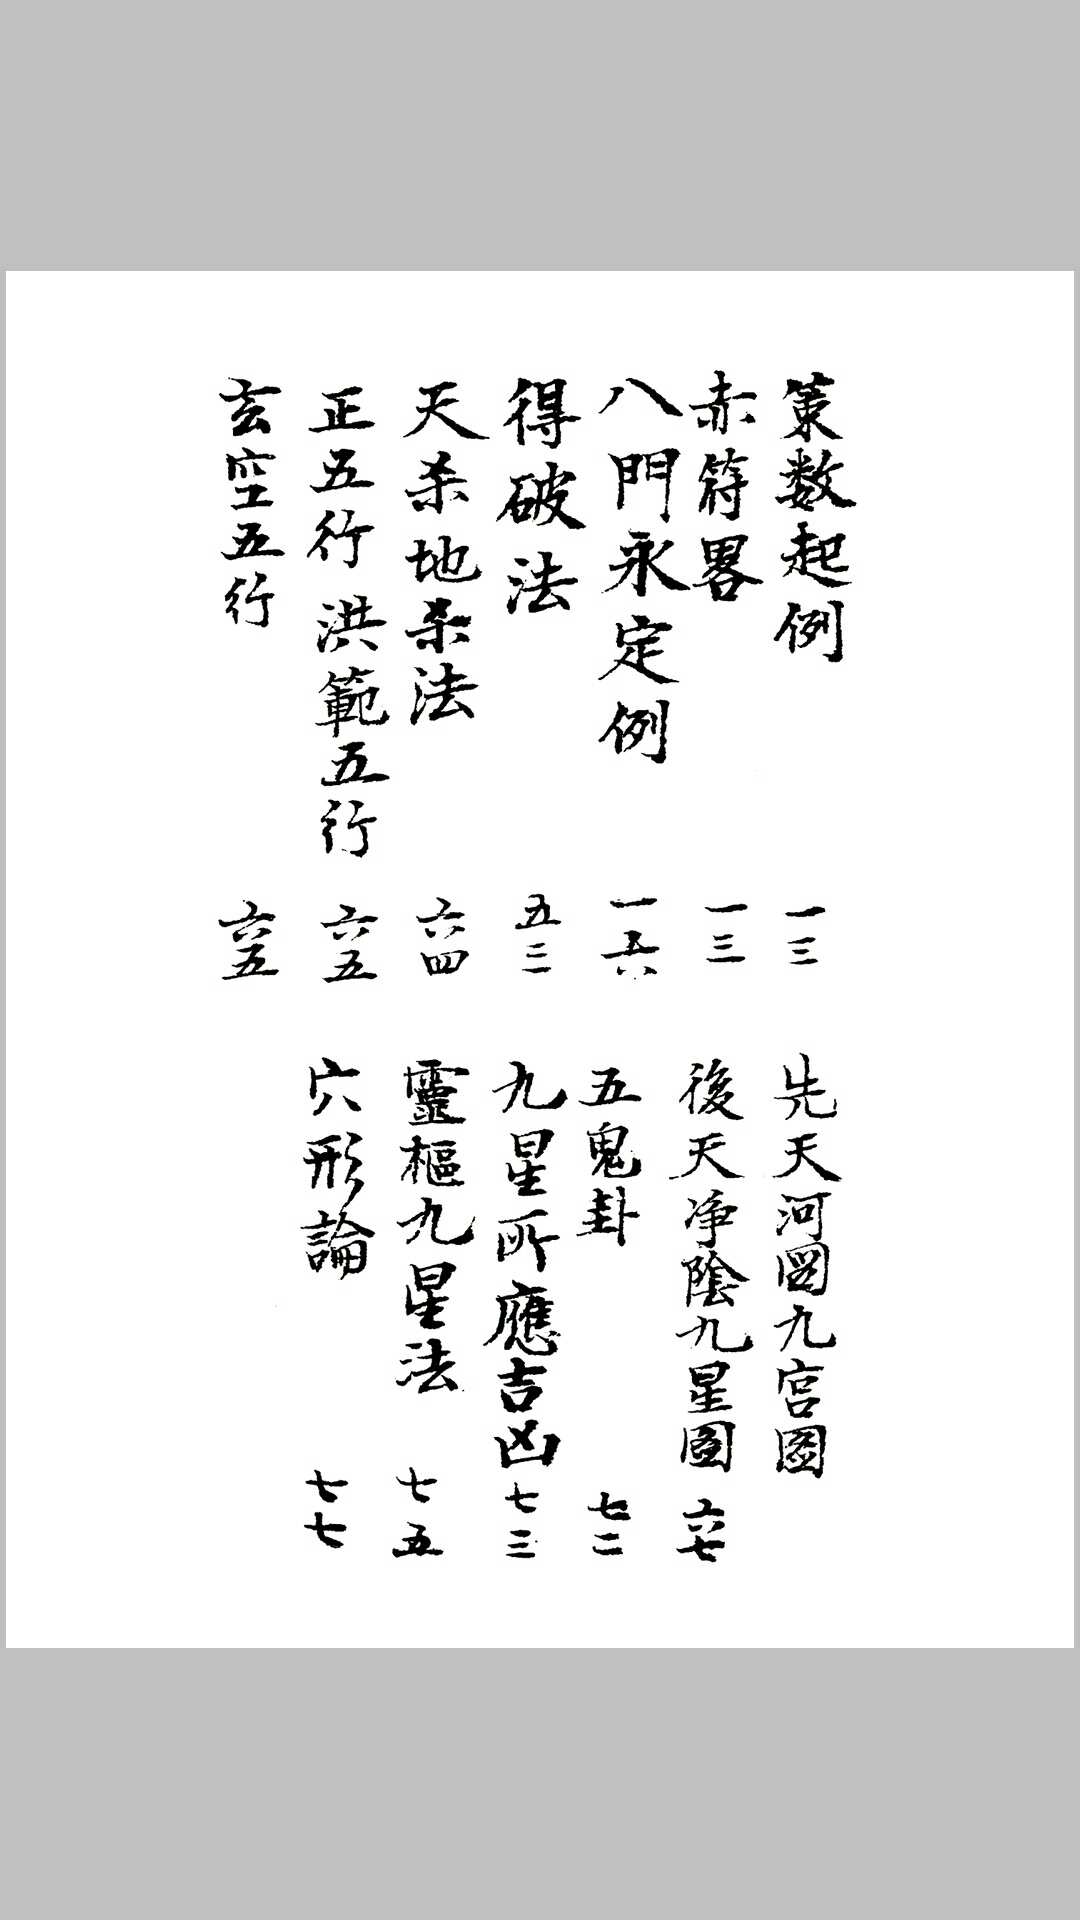 策数起例 一三
赤符畧 一三
八門永定例 一五六
得破法 五二
天杀地杀法 六四
正五行 洪範五行 六五
玄空五行 六五
先天河圖九宫圖
後天净陰九星圖 六七
五鬼卦 七二
九星所應吉凶 七三
靈樞九星法 七五
穴形論 七七